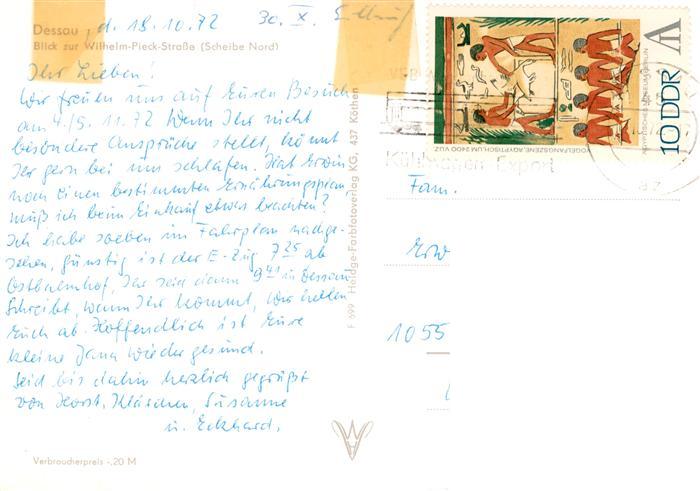 Dessau, d. 18.10.72 30. X.
Blick zur Wilhelm-Pieck-Straße (Scheibe Nord)
Ihr Lieben!
Wir freuen uns auf Euren Besuch
am 4./5. 11.72 Wenn Ihr nicht
besondere Ansprüche stellt, könnt
Ihr gern bei uns schlafen. Hat Erwin
noch einen bestimmten Ernährungsplan,
muß ich beim Einkauf etwas beachten?
Ich habe soeben im Fahrplan nachge-
sehen, günstig ist der E-Zug 7 25 ab
Ostbahnhof, Ihr seid dann 9 41 in Dessau
Schreibt, wann Ihr kommt, wir holen
Euch ab. Hoffendlich ist Eure
kleine Jana wieder gesund.
Seid bis dahin herzlich gegrüßt
von Horst, Kläschen, Susanne
u. Eckhard.
Verbraucherpreis -,20 M
F 699 Heldge-Farbfotoverlag KG, 437 Köthen
VOGELFANGSZENE, ÄGYPTISCH, UM 2400 V.U.Z.
10 DDR
Kühlwagen Export
Fam.
Erw
1055